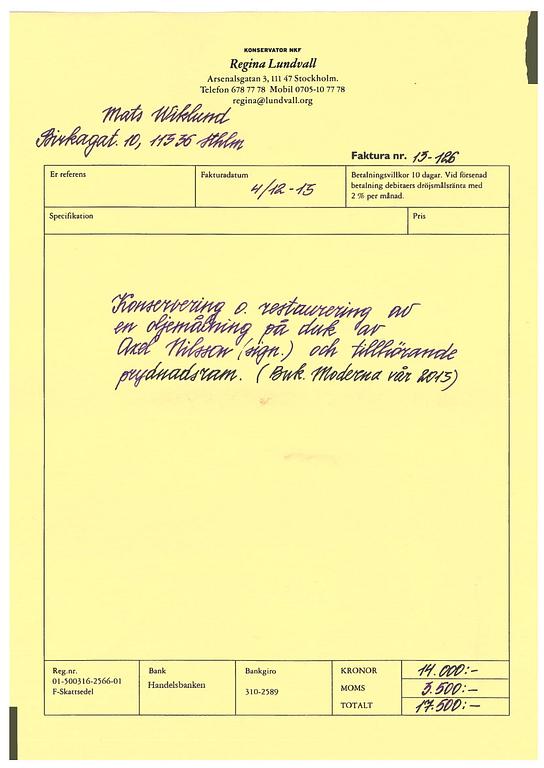 KONSERVATOR NKF
Regina Lundvall
Arsenalsgatan 3, 111 47 Stockholm.
Telefon 678 77 78 Mobil 0705-10 77 78
regina@lundvall.org
Mats Wiklund
Birkagat. 10, 113 36 Sthlm
Faktura nr. 15-126
Er referens
Fakturadatum
4/12-15
Betalningsvillkor 10 dagar. Vid försenad
betalning debitaers dröjsmålsränta med
2 % per månad.
Specifikation
Pris
Konservering o. restaurering av
en oljemålning på duk av
Axel Nilsson (sign.) och tillhörande
prydnadsram. (Buk. Moderna vår 2015)
Reg.nr.
01-500316-2566-01
F-Skattsedel
Bank
Handelsbanken
Bankgiro
310-2589
KRONOR 14.000:-
MOMS 3.500:-
TOTALT 17.500:-